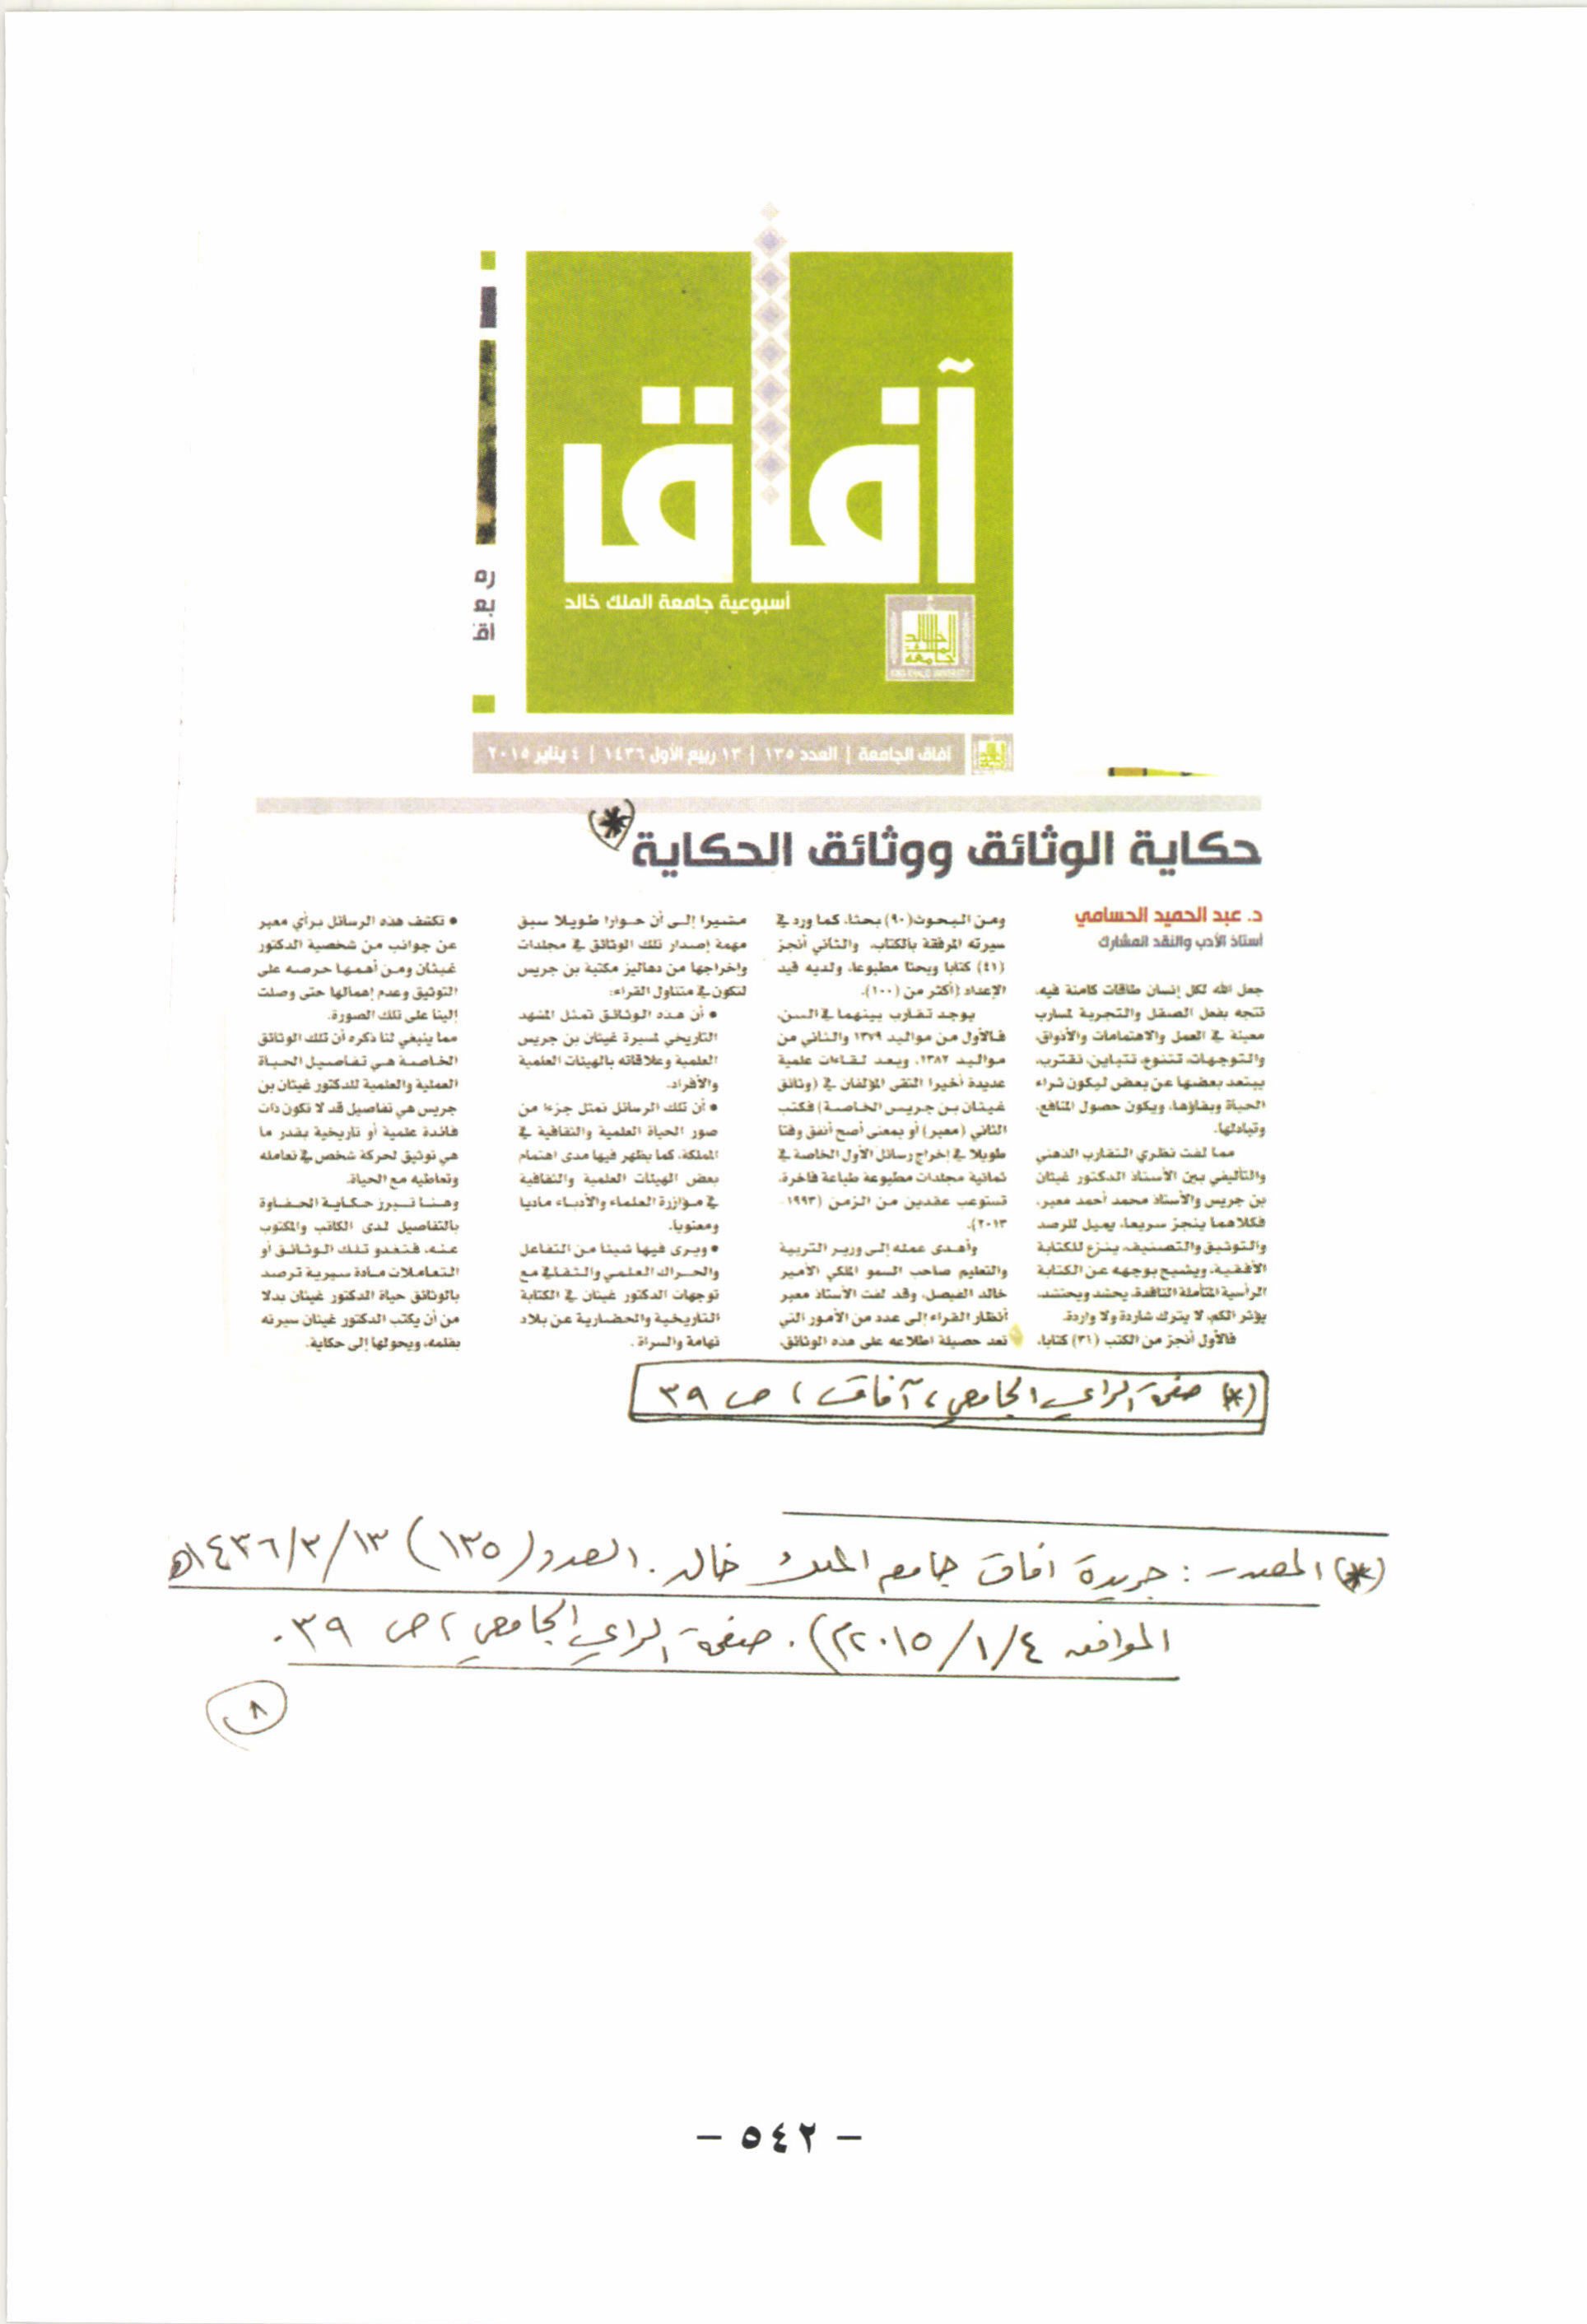 آفاق
أسبوعية جامعة الملك خالد
KING KHALID UNIVERSITY
ره
بع
اق
آفاق الجامعة | العدد ١٣٥ | ١٣ ربيع الأول ١٤٣٦ | ٤ يناير ٢٠١٥
حكاية الوثائق ووثائق الحكاية (*)
د. عبد الحميد الحسامي
أستاذ الأدب والنقد المشارك
جعل الله لكل إنسان طاقات كامنة فيه،
تتجه بفعل الصقل والتجربة لمسارب
معينة في العمل والاهتمامات والأذواق،
والتوجهات، تتنوع، تتباين، تقترب،
يبتعد بعضها عن بعض ليكون ثراء
الحياة وبقاؤها، ويكون حصول المنافع،
وتبادلها.
مما لفت نظري التقارب الذهني
والتأليفي بين الأستاذ الدكتور غيثان
بن جريس والأستاذ محمد أحمد معبر،
فكلاهما ينجز سريعا، يميل للرصد
والتوثيق والتصنيف، ينزع للكتابة
الأفقية، ويشيح بوجهه عن الكتابة
الرأسية المتأملة الناقدة، يحشد ويحتشد،
يؤثر الكم، لا يترك شاردة ولا واردة.
فالأول أنجز من الكتب (٣١) كتابا،
ومن البحوث (٩٠) بحثا، كما ورد في
سيرته المرفقة بالكتاب، والثاني أنجز
(٤١) كتابا وبحثا مطبوعا، ولديه قيد
الإعداد (أكثر من (١٠٠).
يوجد تقارب بينهما في السن،
فالأول من مواليد ١٣٧٩ والثاني من
مواليد ١٣٨٢، وبعد لقاءات علمية
عديدة أخيرا التقى المؤلفان في (وثائق
غيثان بن جريس الخاصة) فكتب
الثاني (معبر) أو بمعنى أصح أنفق وقتا
طويلا في إخراج رسائل الأول الخاصة في
ثمانية مجلدات مطبوعة طباعة فاخرة،
تستوعب عقدين من الزمن (١٩٩٣ـ
٢٠١٣).
وأهدى عمله إلى وزير التربية
والتعليم صاحب السمو الملكي الأمير
خالد الفيصل، وقد لفت الأستاذ معبر
أنظار القراء إلى عدد من الأمور التي
تعد حصيلة اطلاعه على هذه الوثائق،
مشيرا إلى أن حوارا طويلا سبق
مهمة إصدار تلك الوثائق في مجلدات
وإخراجها من دهاليز مكتبة بن جريس
لتكون في متناول القراء:
• أن هذه الوثائق تمثل المشهد
التاريخي لمسيرة غيثان بن جريس
العلمية وعلاقاته بالهيئات العلمية
والأفراد.
• أن تلك الرسائل تمثل جزءا من
صور الحياة العلمية والثقافية في
المملكة، كما يظهر فيها مدى اهتمام
بعض الهيئات العلمية والثقافية
في مؤازرة العلماء والأدباء ماديا
ومعنويا.
• ويرى فيها شيئا من التفاعل
والحراك العلمي والثقافي مع
توجهات الدكتور غيثان في الكتابة
التاريخية والحضارية عن بلاد
تهامة والسراة.
• تكشف هذه الرسائل برأي معبر
عن جوانب من شخصية الدكتور
غيثان ومن أهمها حرصه على
التوثيق وعدم إهمالها حتى وصلت
إلينا على تلك الصورة.
مما ينبغي لنا ذكره أن تلك الوثائق
الخاصة هي تفاصيل الحياة
العملية والعلمية للدكتور غيثان بن
جريس هي تفاصيل قد لا تكون ذات
فائدة علمية أو تاريخية بقدر ما
هي توثيق لحركة شخص في تعامله
وتعاطيه مع الحياة.
وهنا تبرز حكاية الحفاوة
بالتفاصيل لدى الكاتب والمكتوب
عنه، فتغدو تلك الوثائق أو
التعاملات مادة سيرية ترصد
بالوثائق حياة الدكتور غيثان بدلا
من أن يكتب الدكتور غيثان سيرته
بقلمه، ويحولها إلى حكاية.
(*) صفحة الرأي الجامعي، آفاق، ص ٣٩
(*) المصدر: جريدة آفاق جامعة الملك خالد. العدد (١٣٥) ١٣/٣/١٤٣٦هـ
الموافق ٤/١/٢٠١٥م). صفحة الرأي الجامعي، ص ٣٩.
٨
– ٥٤٢ –